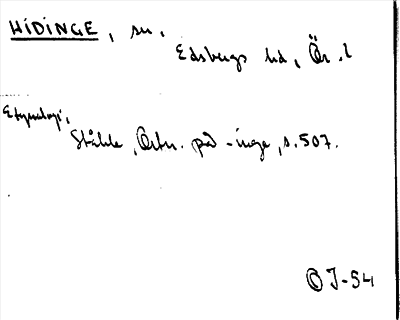 HIDINGE, sn.
Edsbergs hd, Ör. l
Etymologi,
Ståhle, Ortn. på -inge, s. 507.
ÖJ-54